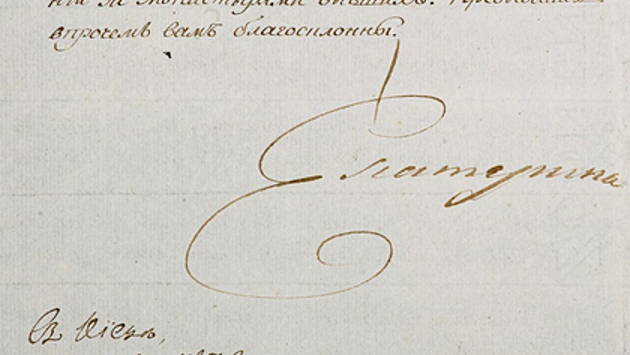 за монастырями бывшихъ. Пребываемъ
впрочемъ вамъ благосклонны.
Екатерина
Въ Кіевѣ,